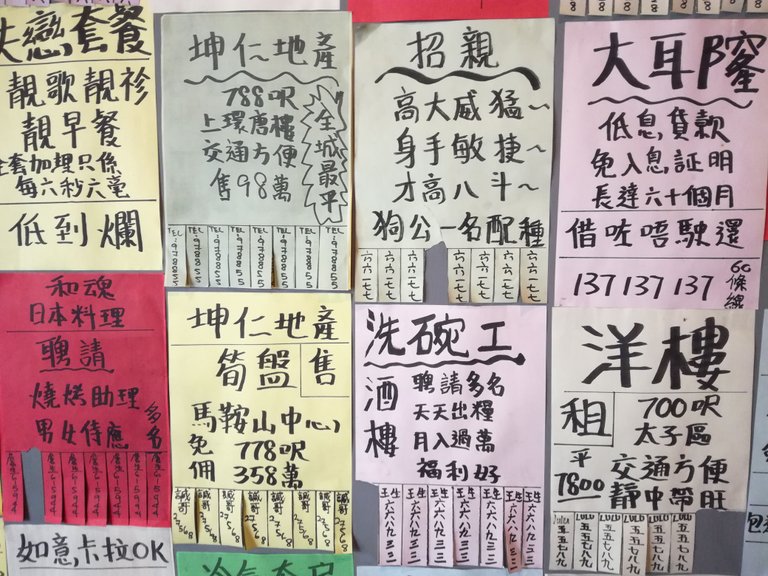 失戀套餐
靚歌靚衫
靚早餐
全套加埋只係
每六秒六毫
低到爛
坤仁地產
788呎
上環唐樓
交通方便
售98萬
全城最平
TEL
978855
招親
高大威猛~
身手敏捷~
才高八斗~
狗公一名配種
六六一二七七
大耳窿
低息貸款
免入息証明
長達六十個月
借咗唔駛還
137 137 137
60條線
和魂
日本料理
聘請
燒烤助理
男女侍應
多名
坤仁地產
筍盤
售
馬鞍山中心
免佣
778呎
358萬
誠哥
洗碗工
酒樓
聘請多名
天天出糧
月入過萬
福利好
王生
六六八九三三
洋樓
租
700呎
太子區
平
7800
交通方便
靜中帶旺
LULU
五五七八九
如意卡拉OK